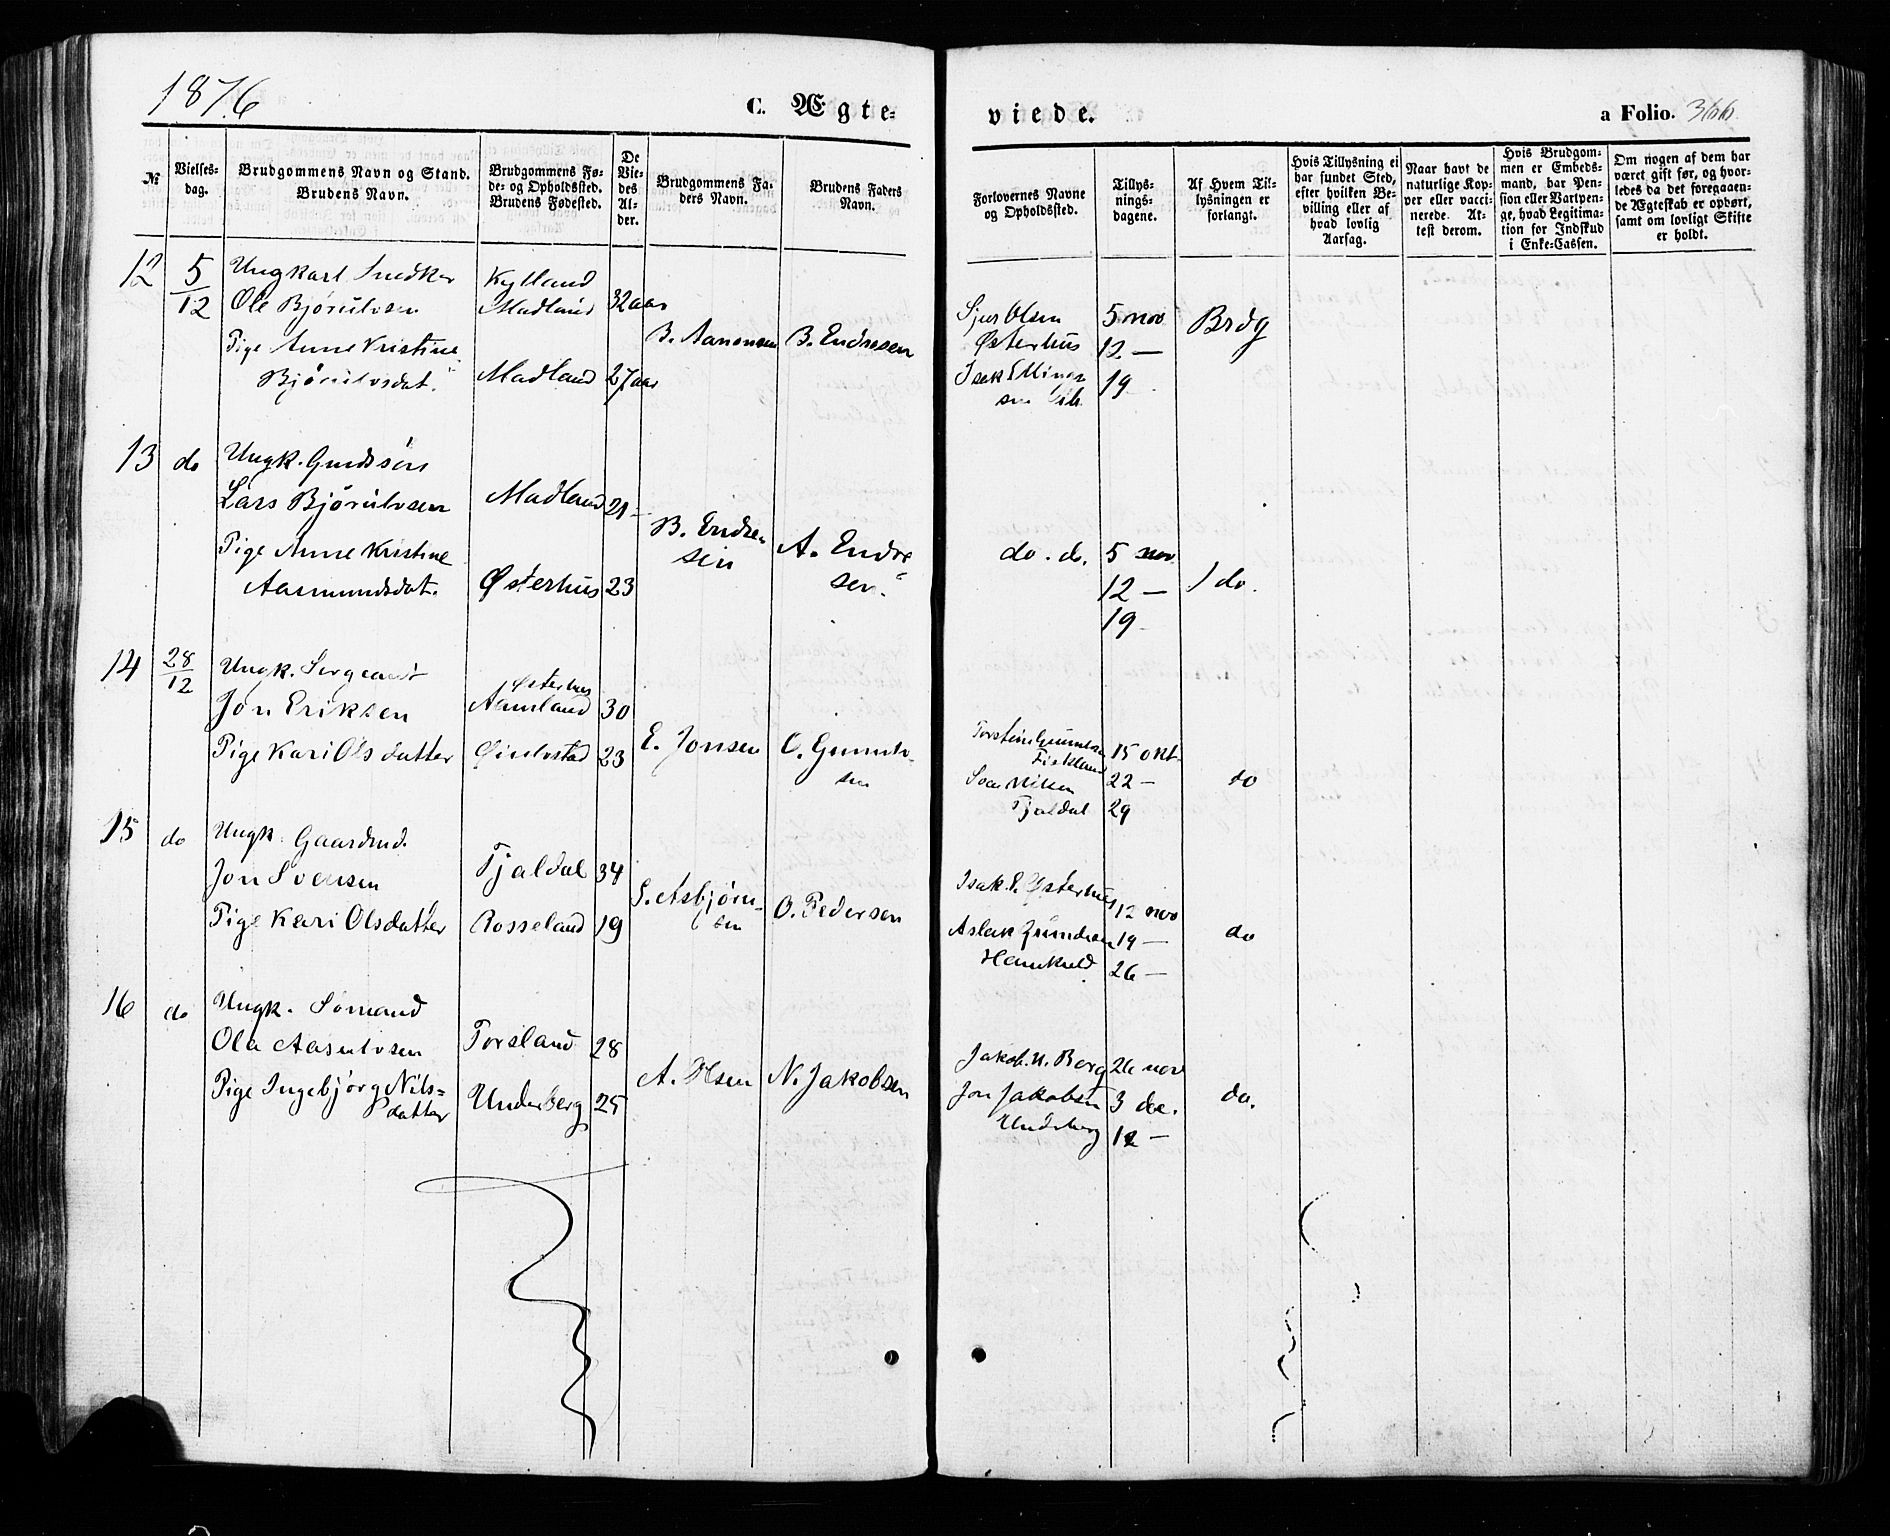 1876
C. Ægte-
viede.
a Folio. 366.
№
Vielses-
dag.
Brudgommens Navn og Stand.
Brudens Navn.
Brudgommens Fø-
de- og Opholdssted.
Brudens Fødested.
De
Vie-
des
Al-
der.
Brudgommens Fa-
ders Navn.
Brudens Faders
Navn.
Forlovernes Navne
og Opholdssted.
Tillys-
nings-
dagene.
Af Hvem Til-
lysningen er
forlangt.
Hvis Tillysning ei
har fundet Sted,
efter hvilken Be-
villing eller af
hvad lovlig
Aarsag.
Naar havt de
naturlige Kop-
per eller vacci-
nerede. At-
test derom.
Hvis Brudgom-
men er Embeds-
mand, har Pen-
sion eller Vartpen-
ge, hvad Legitima-
tion for Indskud
i Enke-Cassen.
Om nogen af dem har
været gift før, og hvor-
ledes da det foregaaen-
de Ægteskab er ophørt,
samt om lovligt Skifte
er holdt.
12 5/12 Ungkarl Snedker
Ole Bjørulvsen
Kylland
Madland 32 aar
Pige Anne Kristine
Bjørulvsdat. Madland 27 aar
B. Aanonsen B. Endresen
Sjur Olsen
Østerhus
Isak Ellings-
sen ib.
5 nov
12 —
19 -
Brdg
13 do Ungk. Gmdssøn
Lars Bjørulvsen Madland 21 -
Pige Anne Kristine
Aasmundsdat. Østerhus 23
B. Endre
sen
A. Endre
sen.
do. do. 5 nov
12 —
19 -
do.
14 28/12 Ungk. Sergeant
Jon Eriksen
Østerhus
Aamland 30
Pige Kari Olsdatter 23
E. Jonsen O. Gunnulv-
sen
Torstein
Fiskland
Tjaldal
15 okt.
22 —
29
do
15 do Ungk. Gaardmd.
Jon Svensen Tjaldal 34
Pige Kari Olsdatter Rosseland 19
S. Asbjørn-
sen
O. Pedersen
Isak E. Østerhus
Aslak
12 nov
19 —
26 —
do
16 do Ungk. Sømand
Ola Aasulvsen Torsland 28
Pige Ingebjørg Nils-
datter Underberg 25
A. Olsen N. Jakobsen
Jakob. N. Berg
Jon Jakobsen
Underberg
26 nov
3 de.
12 —
do.